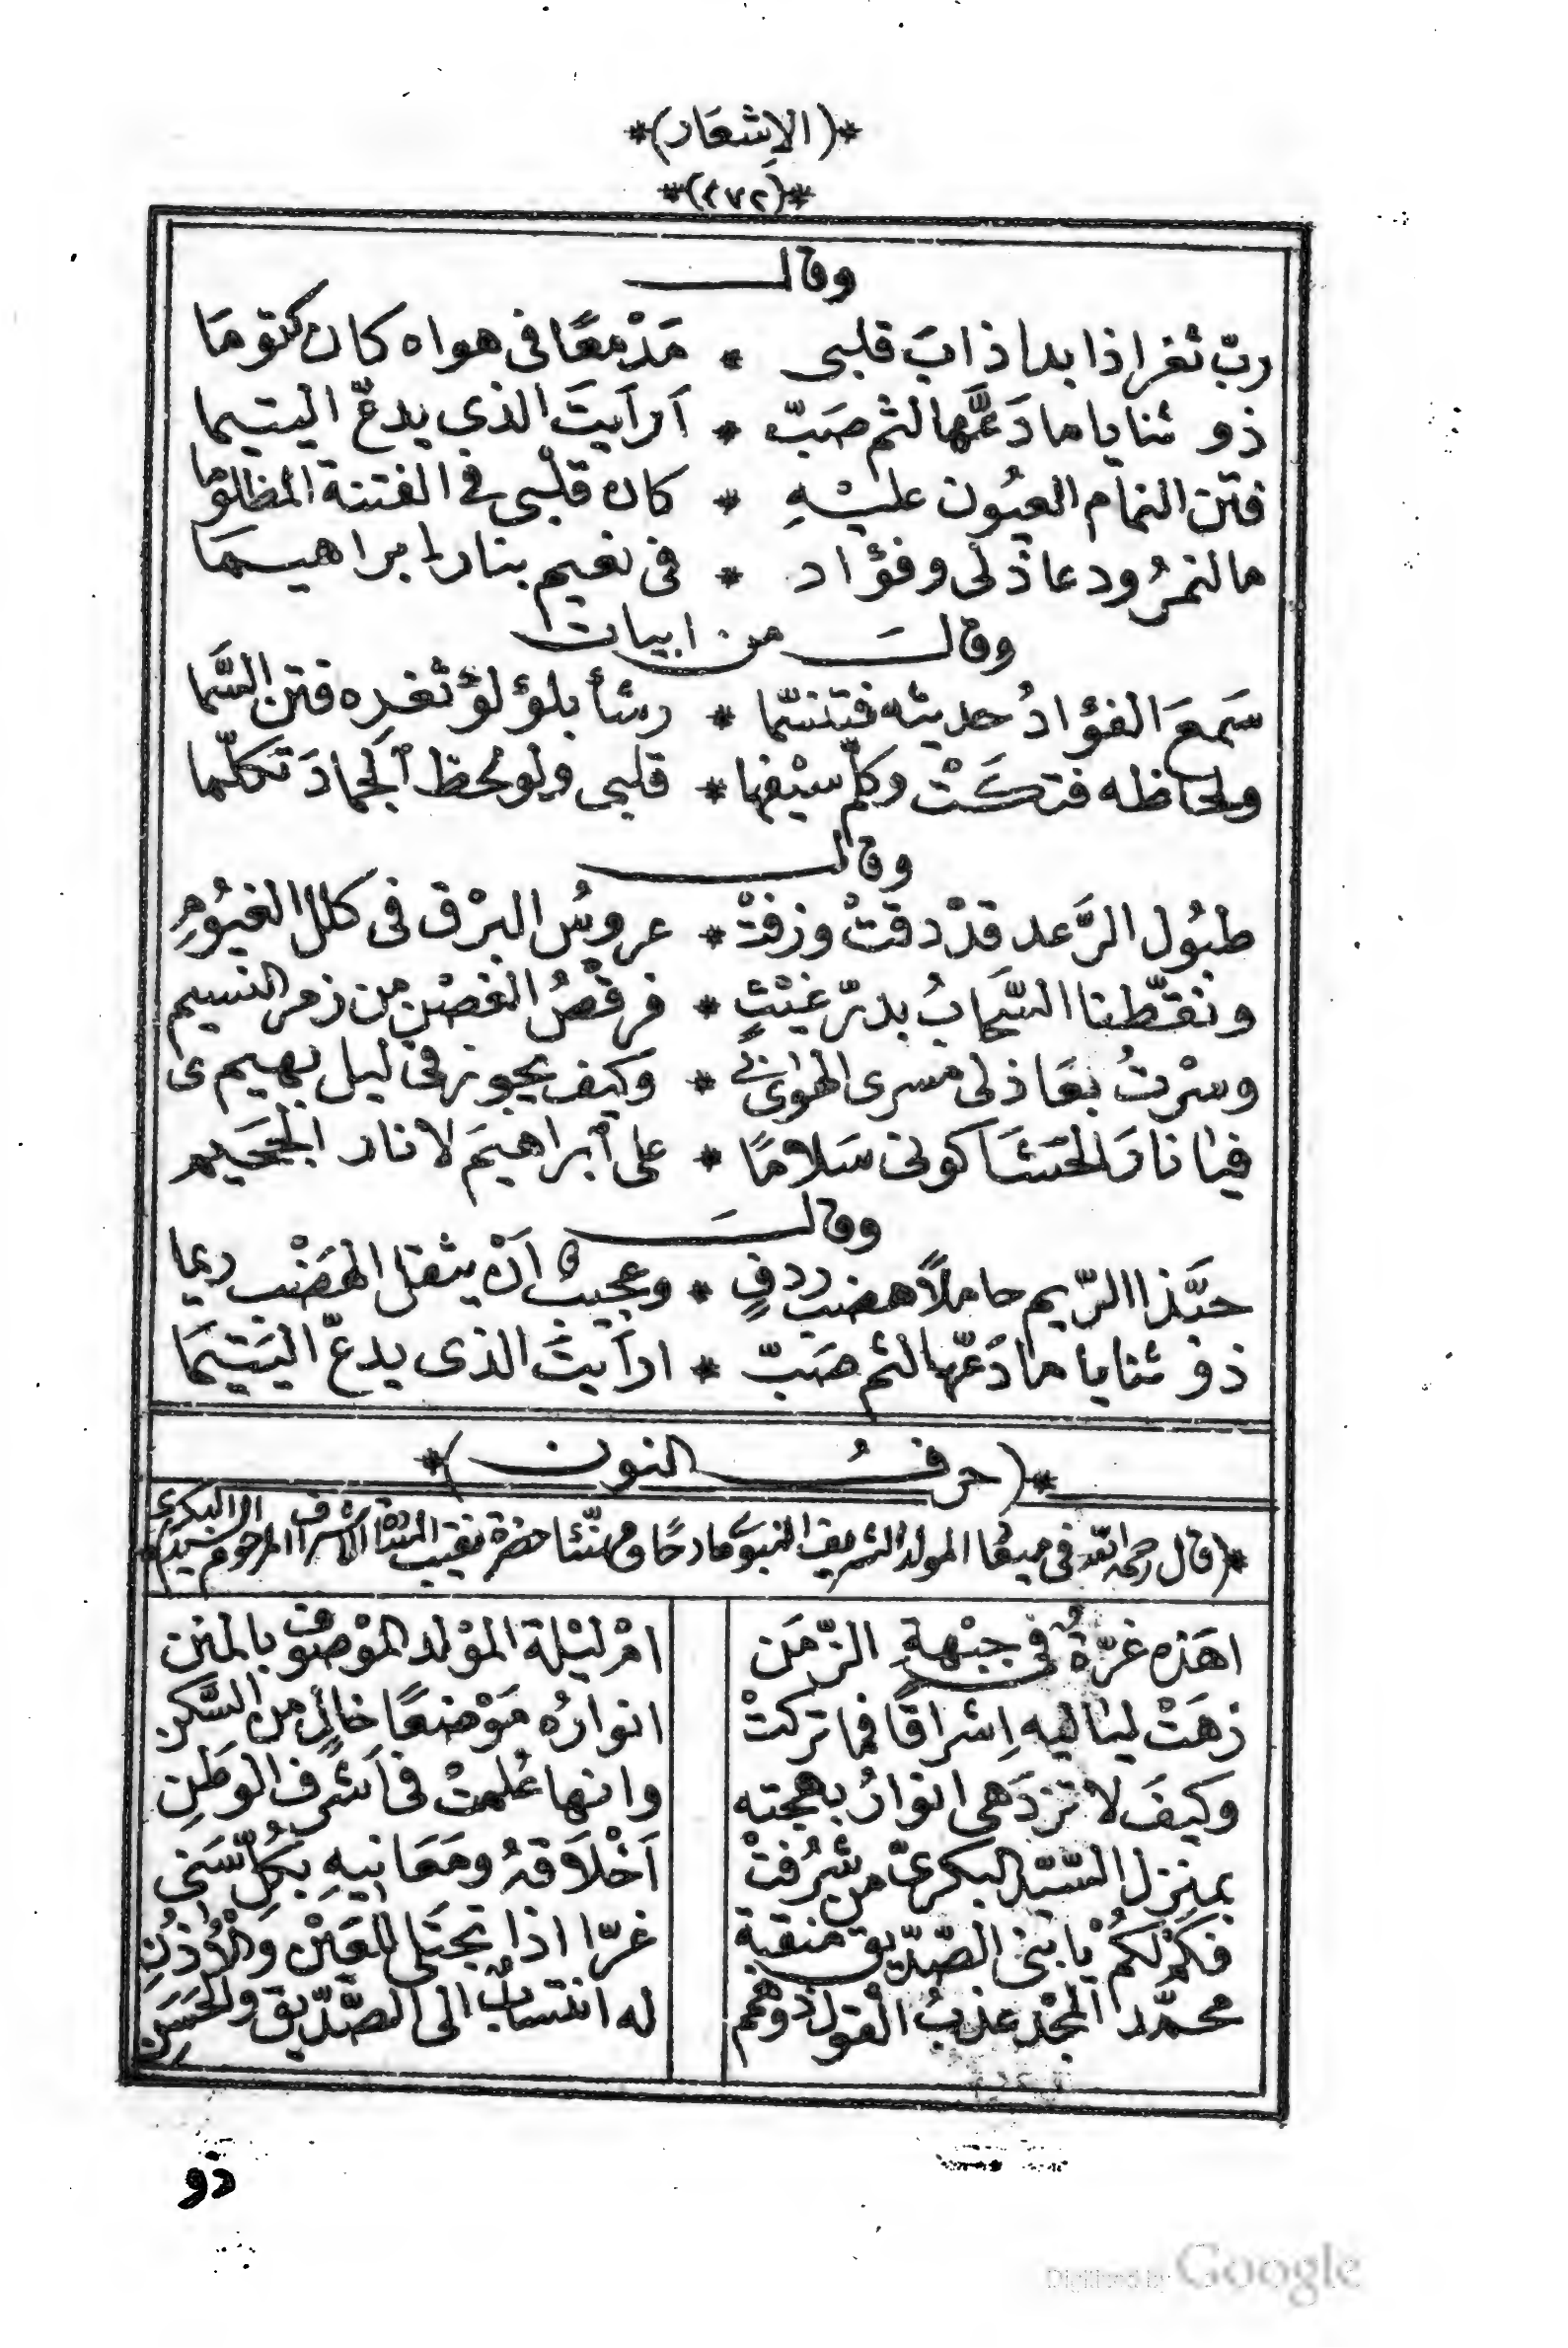 *(الاِشعَار)*
*(٤٧٢)*
وقالـــ
ربّ ثغر اذا بدا ذابَ قلبى * مَدْمعًا فى هواه كان كتومَا
ذو ثنايا ما دَعَّها لثم صَبّ * اَرَاَيتَ الذي يدعّ اليتيما
فتن النمام العيُون عليْهِ * كان قلْبى فى الفتنة المظلوما
ما لنمرُود عاذلى وفؤاد * فى نعيم بنار ابراهيمَا
وقالَــ من ابيات
سَمعَ الفؤادُ حديثه فتنسّما * رشأ بلؤلؤ ثغره فتن السَّما
ولحاظه فتكَتْ وكلّم سيْفها * قلبى ولو لحظ الجمادَ تكلّما
وقالـــ
طبُول الرَّعد قدْ دقتْ وزفتْ * عروسُ البرْق فى كلل الغيُومِ
ونقّطنا السَّحابُ بدرّ غيْثٍ * فرقْصُ الغصْن من زمر النسيم
وسرْتُ بعَاذلى مسرى الهوىٰ بى * وكيف يجوز فى ليل بهيمى
فيا نارَ الحشَا كونى سَلامًا * على ابراهيمَ لا نار الجحَيم
وقالَـــ
حبَّذا الرّيم حاملاً هضب ردفٍ * وعجيبٌ اَنْ يثقل الهضْب ريما
ذو ثنايا ما دَعّها لثم صَبّ * اراَيتَ الذى يدعّ اليَتيمَا
*(حرفُــ النونــ)*
*(قال رحمه الله فى ميقا المولد الشريف النبوى مادحًا ومهنّئًا حضرة نقيب السادة الاشراف المرحوم السيد البكرى)*
اهَذه غرّةٌ فى جبْهةِ الزّمَن امْ ليْلة الموْلد الموْصوف بالمنن
زهَتْ لياليه اِشراقًا فما تركتْ انوارُه مَوْضعًا خالٍ من السَّكن
وكيفَ لا تزدَهى انوارُ بهجته وانها عُلمتْ فى اَشرف الوطَنِ
بمنزل السّيّد البكرىّ من شرُفتْ اَخْلاَقهُ ومَعَانيهِ بكُلّ سَنى
فكمْ لكمُ يا بنى الصّدّيق منقبة غرّا اذا تجتَلى للعَيْن وَالْأذُنِ
محمّد المجْد عذبُ القول ذو همم له انتسابٌ الى الصّدّيق والحَسَنِ
ذو
Digitized by Google